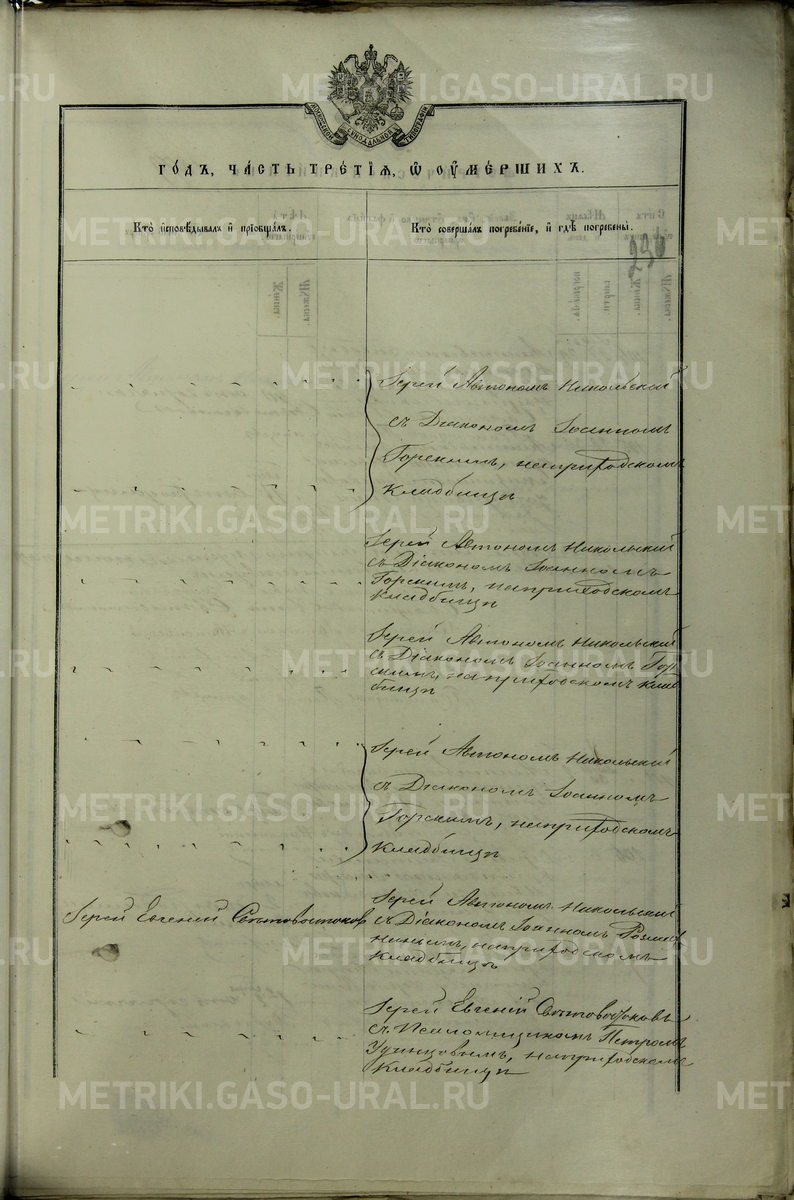 МОСКОВСКОЙ СѴНОДАЛЬНОЙ ТИПОГРАФІИ
ГО́ДЪ, ЧА́СТЬ ТРЕ́ТІЯ, Ѡ҆ ОУ҆МЕ́РШИХЪ.
Кто̀ и҆сповѣ́дывалъ и҆ прїѡбща́лъ.
Кто̀ соверша́лъ погребе́нїе, и҆ гдѣ̀ погребены̀.
236
Іерей Автономъ Никольскій
съ Діакономъ Іоанномъ
Горскимъ, на приходскомъ
Кладбищѣ
Іерей Автономъ Никольскій
съ Діакономъ Іоанномъ
Горскимъ, на приходскомъ
Кладбищѣ
Іерей Автономъ Никольскій
съ Діакономъ Іоанномъ Гор
скимъ, на приходскомъ клад
бищѣ
Іерей Автономъ Никольскій
съ Діакономъ Іоанномъ
Горскимъ, на приходскомъ
Кладбищѣ
Іерей Евгеній Святовостоковъ
Іерей Автономъ Никольскій
съ Діакономъ Іоанномъ
на приходскомъ
Кладбищѣ
Іерей Евгеній Святовостоковъ
съ Псаломщикомъ Петромъ
Удинцовымъ, на приходскомъ
Кладбищѣ
METRIKI.GASO-URAL.RU